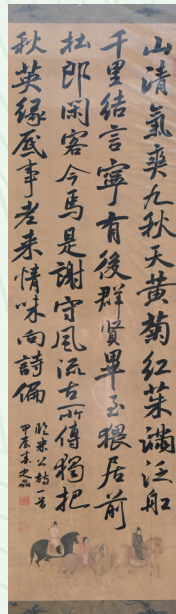 山清氣爽九秋天黃菊紅茱滿泛船
千里結言寧有後群賢畢至猥居前
杜郎閑客今焉是謝守風流古所傳獨把
秋英緣底事老來情味向詩偏
臨米公詩一首